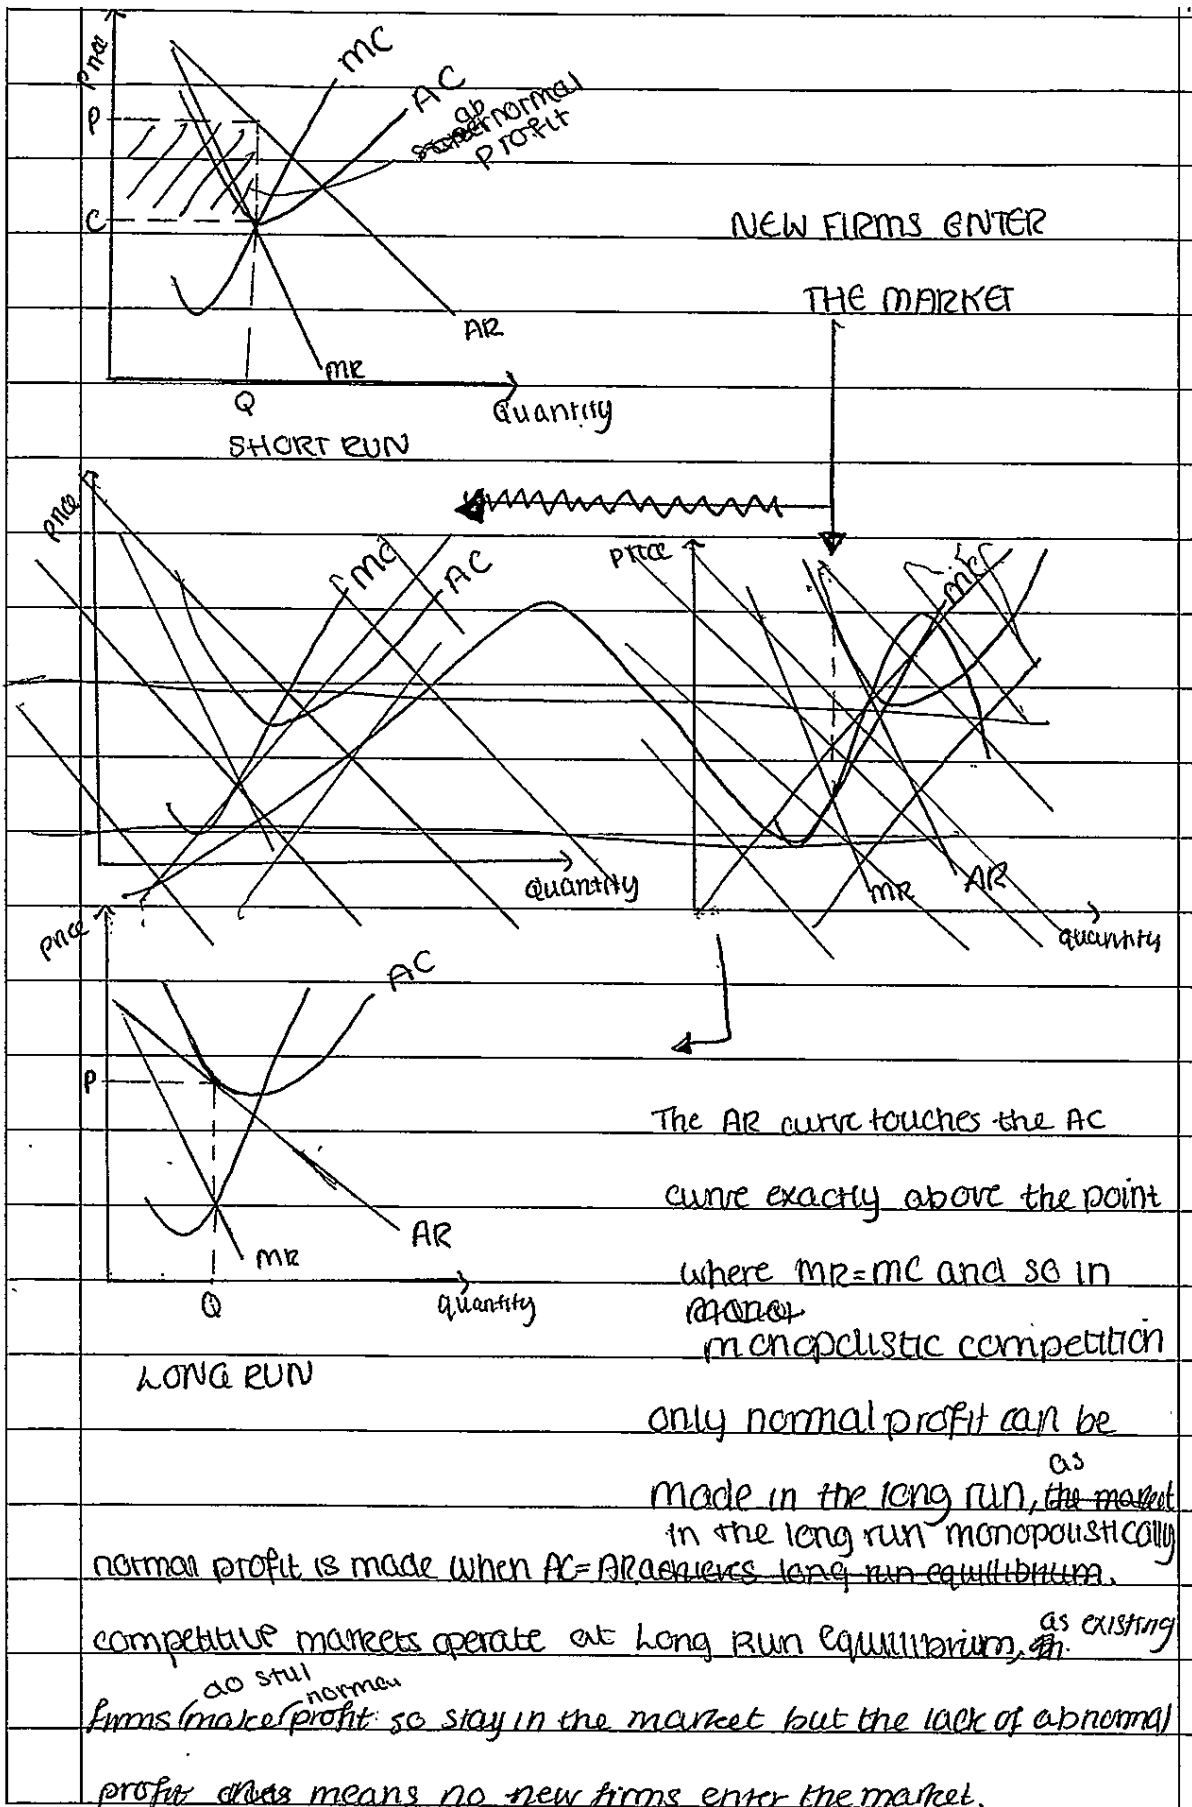 Price
MC
AC
P
ab
supernormal
profit
C
AR
MR
Q
Quantity
SHORT RUN
NEW FIRMS ENTER
THE MARKET
price
MC
AC
Quantity
price
MC
MR
AR
quantity
price
AC
P
MR
AR
Q
quantity
LONG RUN
The AR curve touches the AC
curve exactly above the point
where MR=MC and so in
monopolistic competition
only normal profit can be
as
made in the long run, the market
in the long run monopolistically
normal profit is made when AC=AR achieves long run equilibrium.
competitive markets operate at Long Run Equilibrium, as existing
do still normal
firms make profit so stay in the market but the lack of abnormal
profit means no new firms enter the market.